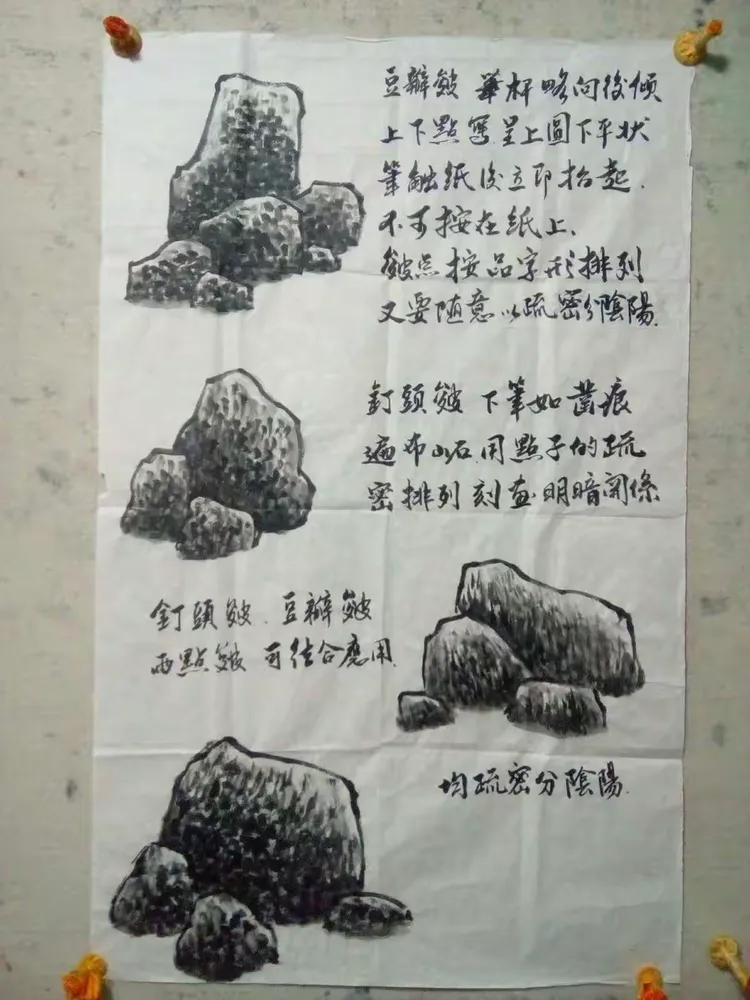 豆瓣皴 筆杆略向後傾
上下點寫呈上圓下平狀
筆触紙後立即抬起.
不可按在紙上.
皴点按品字形排列
又要随意以疏密分陰陽.
釘頭皴 下筆如凿痕
遍布山石.用點子的疏
密排列刻画明暗関係
釘頭皴.豆瓣皴
雨點皴 可结合應用.
均疏密分陰陽.